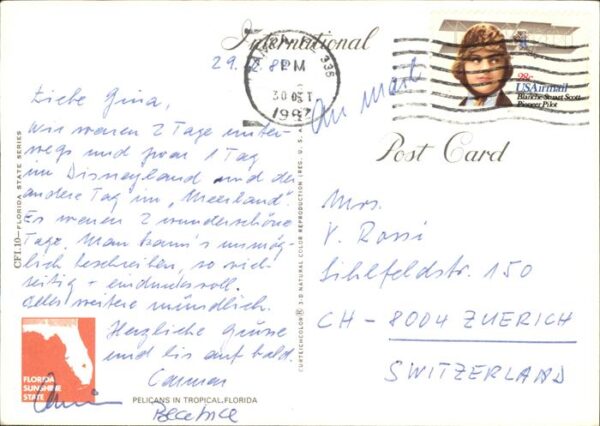 International
29.
PM
30 OCT
1982
336
28c
USAirmail
Blanche Stuart Scott
Pioneer Pilot
Air mail
Post Card
Liebe Gina,
Wir waren 2 Tage unter-
wegs und zwar 1 Tag
im Disneyland und der
andere Tag im "Meerland".
Es waren 2 wunderschöne
Tage. Man kann's unmög-
lich beschreiben, so viel-
seitig + eindrucksvoll.
Alles weitere mündlich.
Herzliche Grüsse
und bis auf bald.
Carmen
Beatrice
Mrs.
V. Rossi
Sihlfeldstr. 150
CH - 8004 ZUERICH
SWITZERLAND
CFI.10—FLORIDA STATE SERIES
CURTEICHCOLOR® 3-D NATURAL COLOR REPRODUCTION (REG. U. S. A.
FLORIDA
SUNSHINE
STATE
PELICANS IN TROPICAL FLORIDA